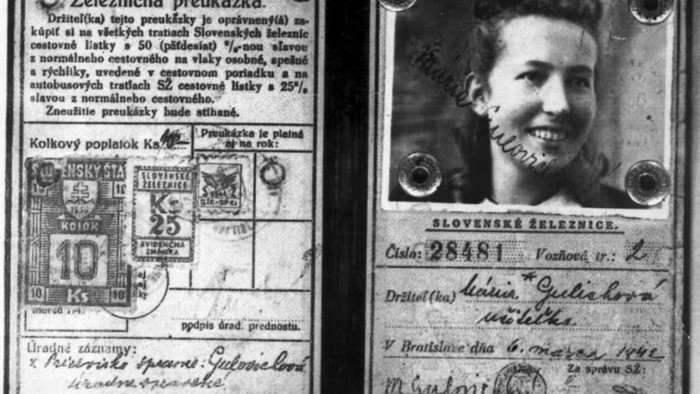 Železničná preukázka.
Držiteľ(ka) tejto preukázky je oprávnený(á) za-
kúpiť si na všetkých tratiach Slovenských železníc
cestovné lístky s 50 (päťdesiat) %-nou slavou
z normálneho cestovného na vlaky osobné, spešné
a rýchliky, uvedené v cestovnom poriadku a na
autobusových tratiach SŽ cestovné lístky s 25%
slavou z normálneho cestovného.
Zneužitie preukázky bude stíhané.
Kolkový poplatok Ks
Preukázka je platná
aj na rok:
10
10
KOLOK
10
10 Ks 10
SLOVENSKÉ
ŽELEZNICE
Ks
25
EVIDENČNÁ
ZNÁMKA
podpis úrad. prednostu.
Úradné záznamy:
Gulovičová
Mária Gulovič
SLOVENSKÉ ŽELEZNICE.
Číslo: 28481 Vozňová tr.: 2
Držiteľ(ka) Mária Gulichová
učiteľka
V Bratislave dňa 6. marca 1942
Za správu SŽ:
M Gulovič